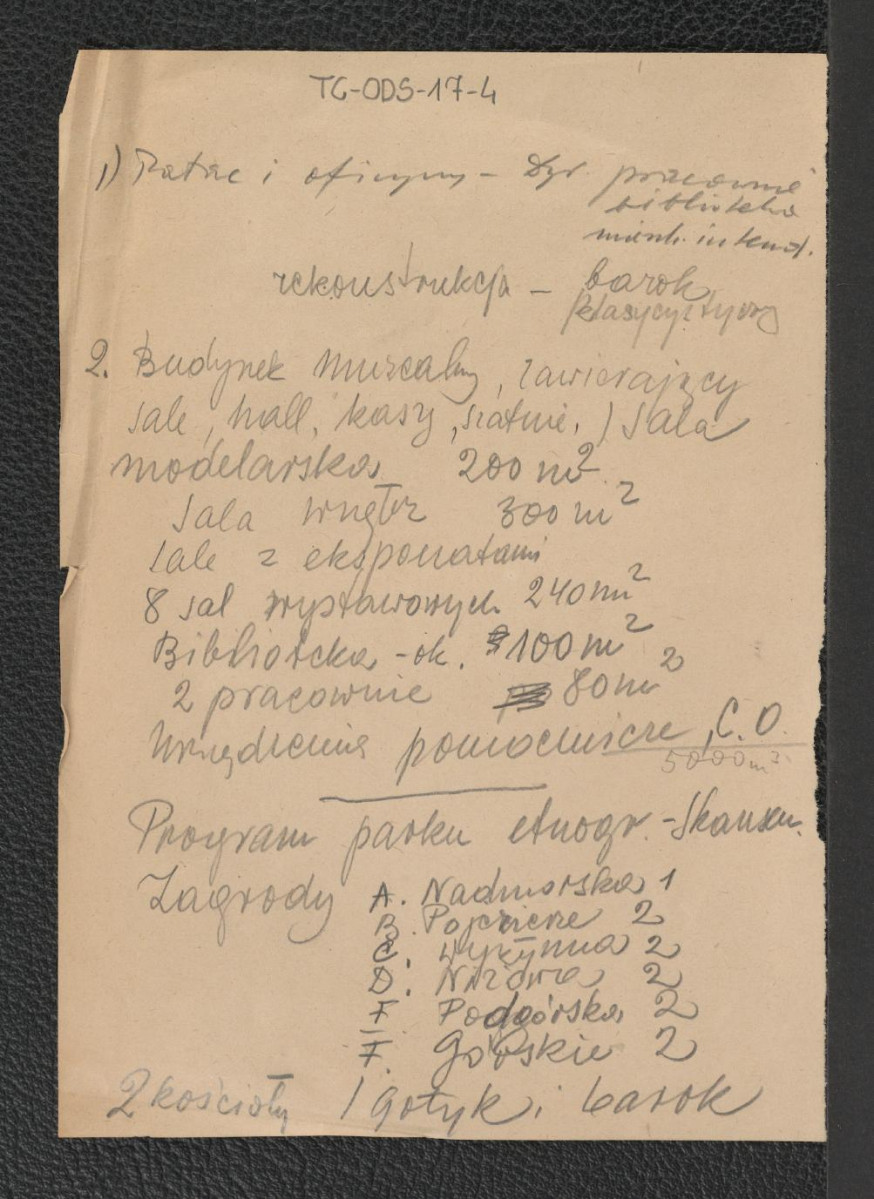 TG-ODS-17-4
1) Pałac i oficyny - Dyr. pracownie
biblioteka
mieszk. intend.
rekonstrukcja - barok
klasycystyczny
2. Budynek muzealny, zawierający
sale, hall, kasy, szatnie, ) Sala
modelarska 200 m2
Sala wnętrz 300 m2
sale z eksponatami
8 sal wystawowych 240 m2
Biblioteka - ok. 100 m2
2 pracownie 80 m2
Urządzenia pomocnicze, C.O.
5000 m3
Program parku etnogr. - Skansen.
Zagrody A. Nadmorska 1
B. Pojezierze 2
C. Wyżynna 2
D. Nizinna 2
F Podgórska 2
F. Górskie 2
2 kościoły / gotyk i barok